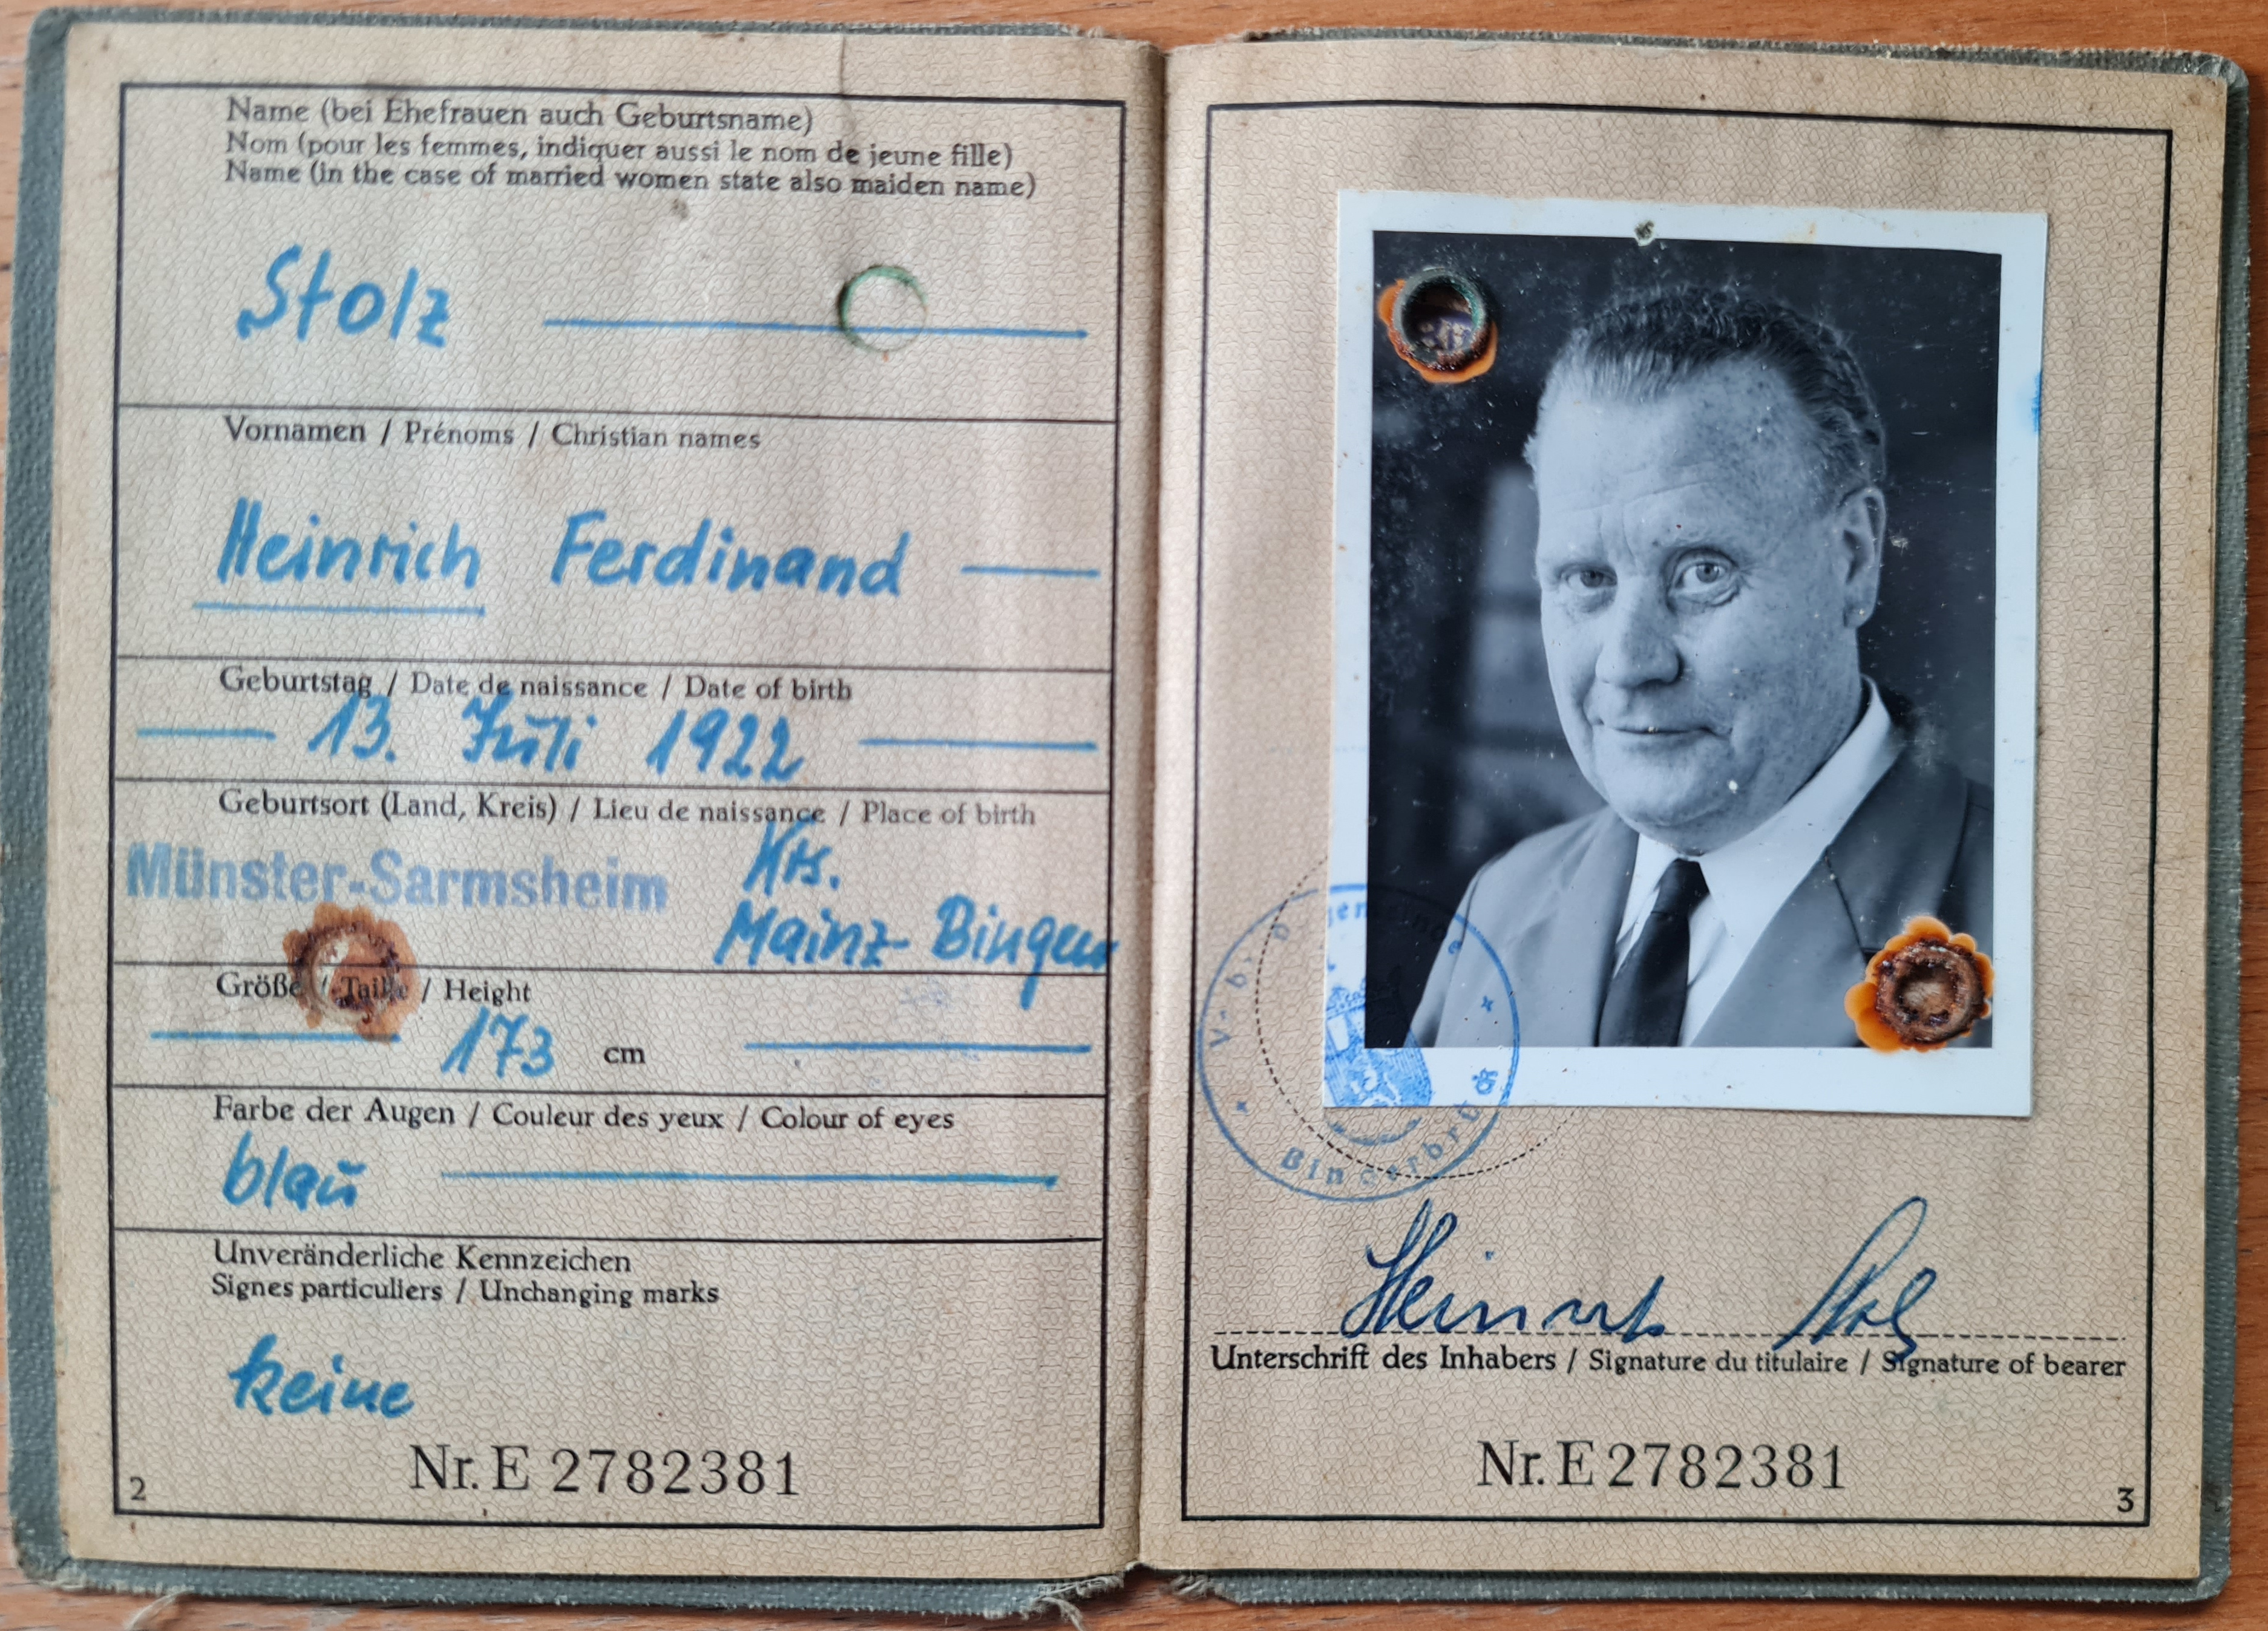 Name (bei Ehefrauen auch Geburtsname)
Nom (pour les femmes, indiquer aussi le nom de jeune fille)
Name (in the case of married women state also maiden name)
Stolz
Vornamen / Prénoms / Christian names
Heinrich Ferdinand
Geburtstag / Date de naissance / Date of birth
13. Juli 1922
Geburtsort (Land, Kreis) / Lieu de naissance / Place of birth
Münster-Sarmsheim
Krs.
Mainz-Bingen
Größe / Taille / Height
173 cm
Farbe der Augen / Couleur des yeux / Colour of eyes
blau
Unveränderliche Kennzeichen
Signes particuliers / Unchanging marks
keine
Nr. E 2782381
2
Bingerbrück
Heinrich Stolz
Unterschrift des Inhabers / Signature du titulaire / Signature of bearer
Nr. E 2782381
3